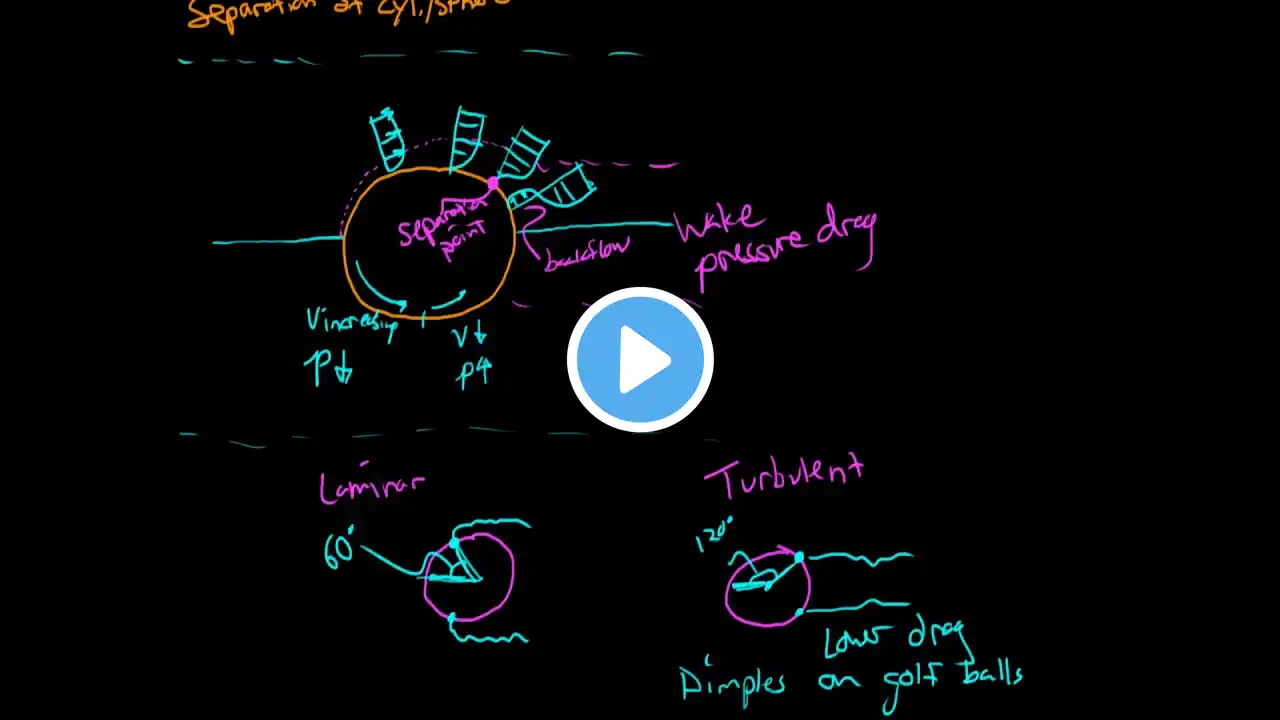 Separation of cyl./sphere
separation
point
backflow
Wake
pressure drag
V increasing
P↓
V↓
P↑
Laminar
60°
Turbulent
120°
Lower drag
Dimples on golf balls